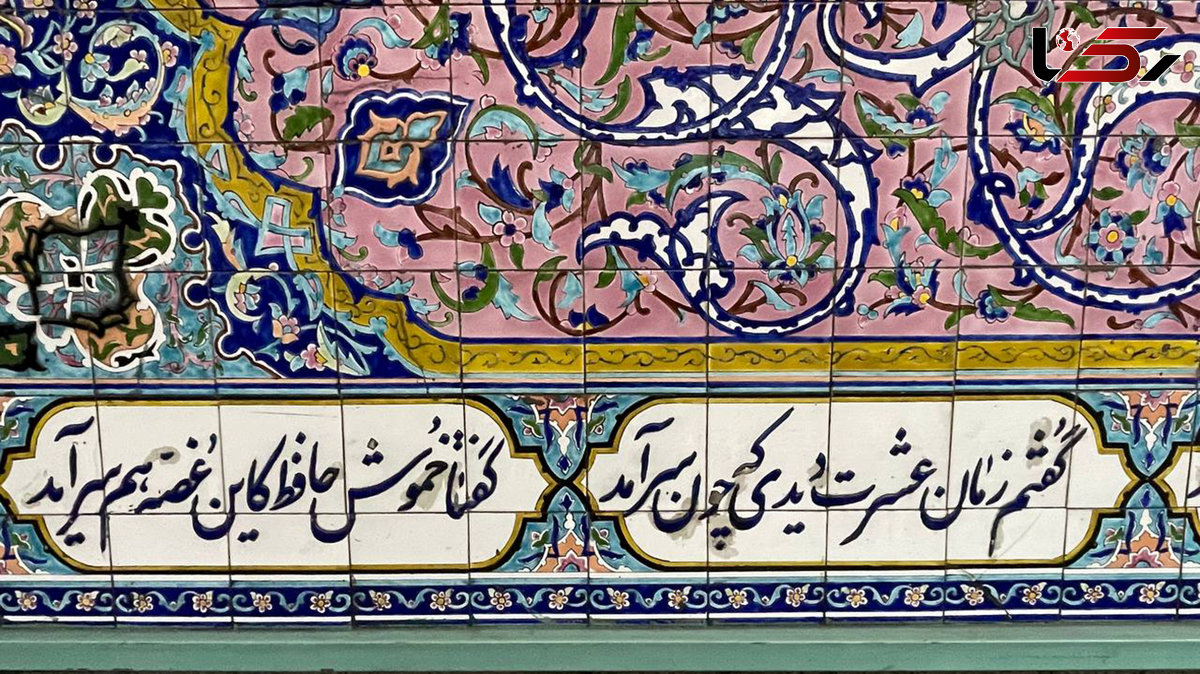 گفتم زمان عشرت دیدی که چون سر آمد
گفتا خموش حافظ کاین غصه هم سر آید
رکنا